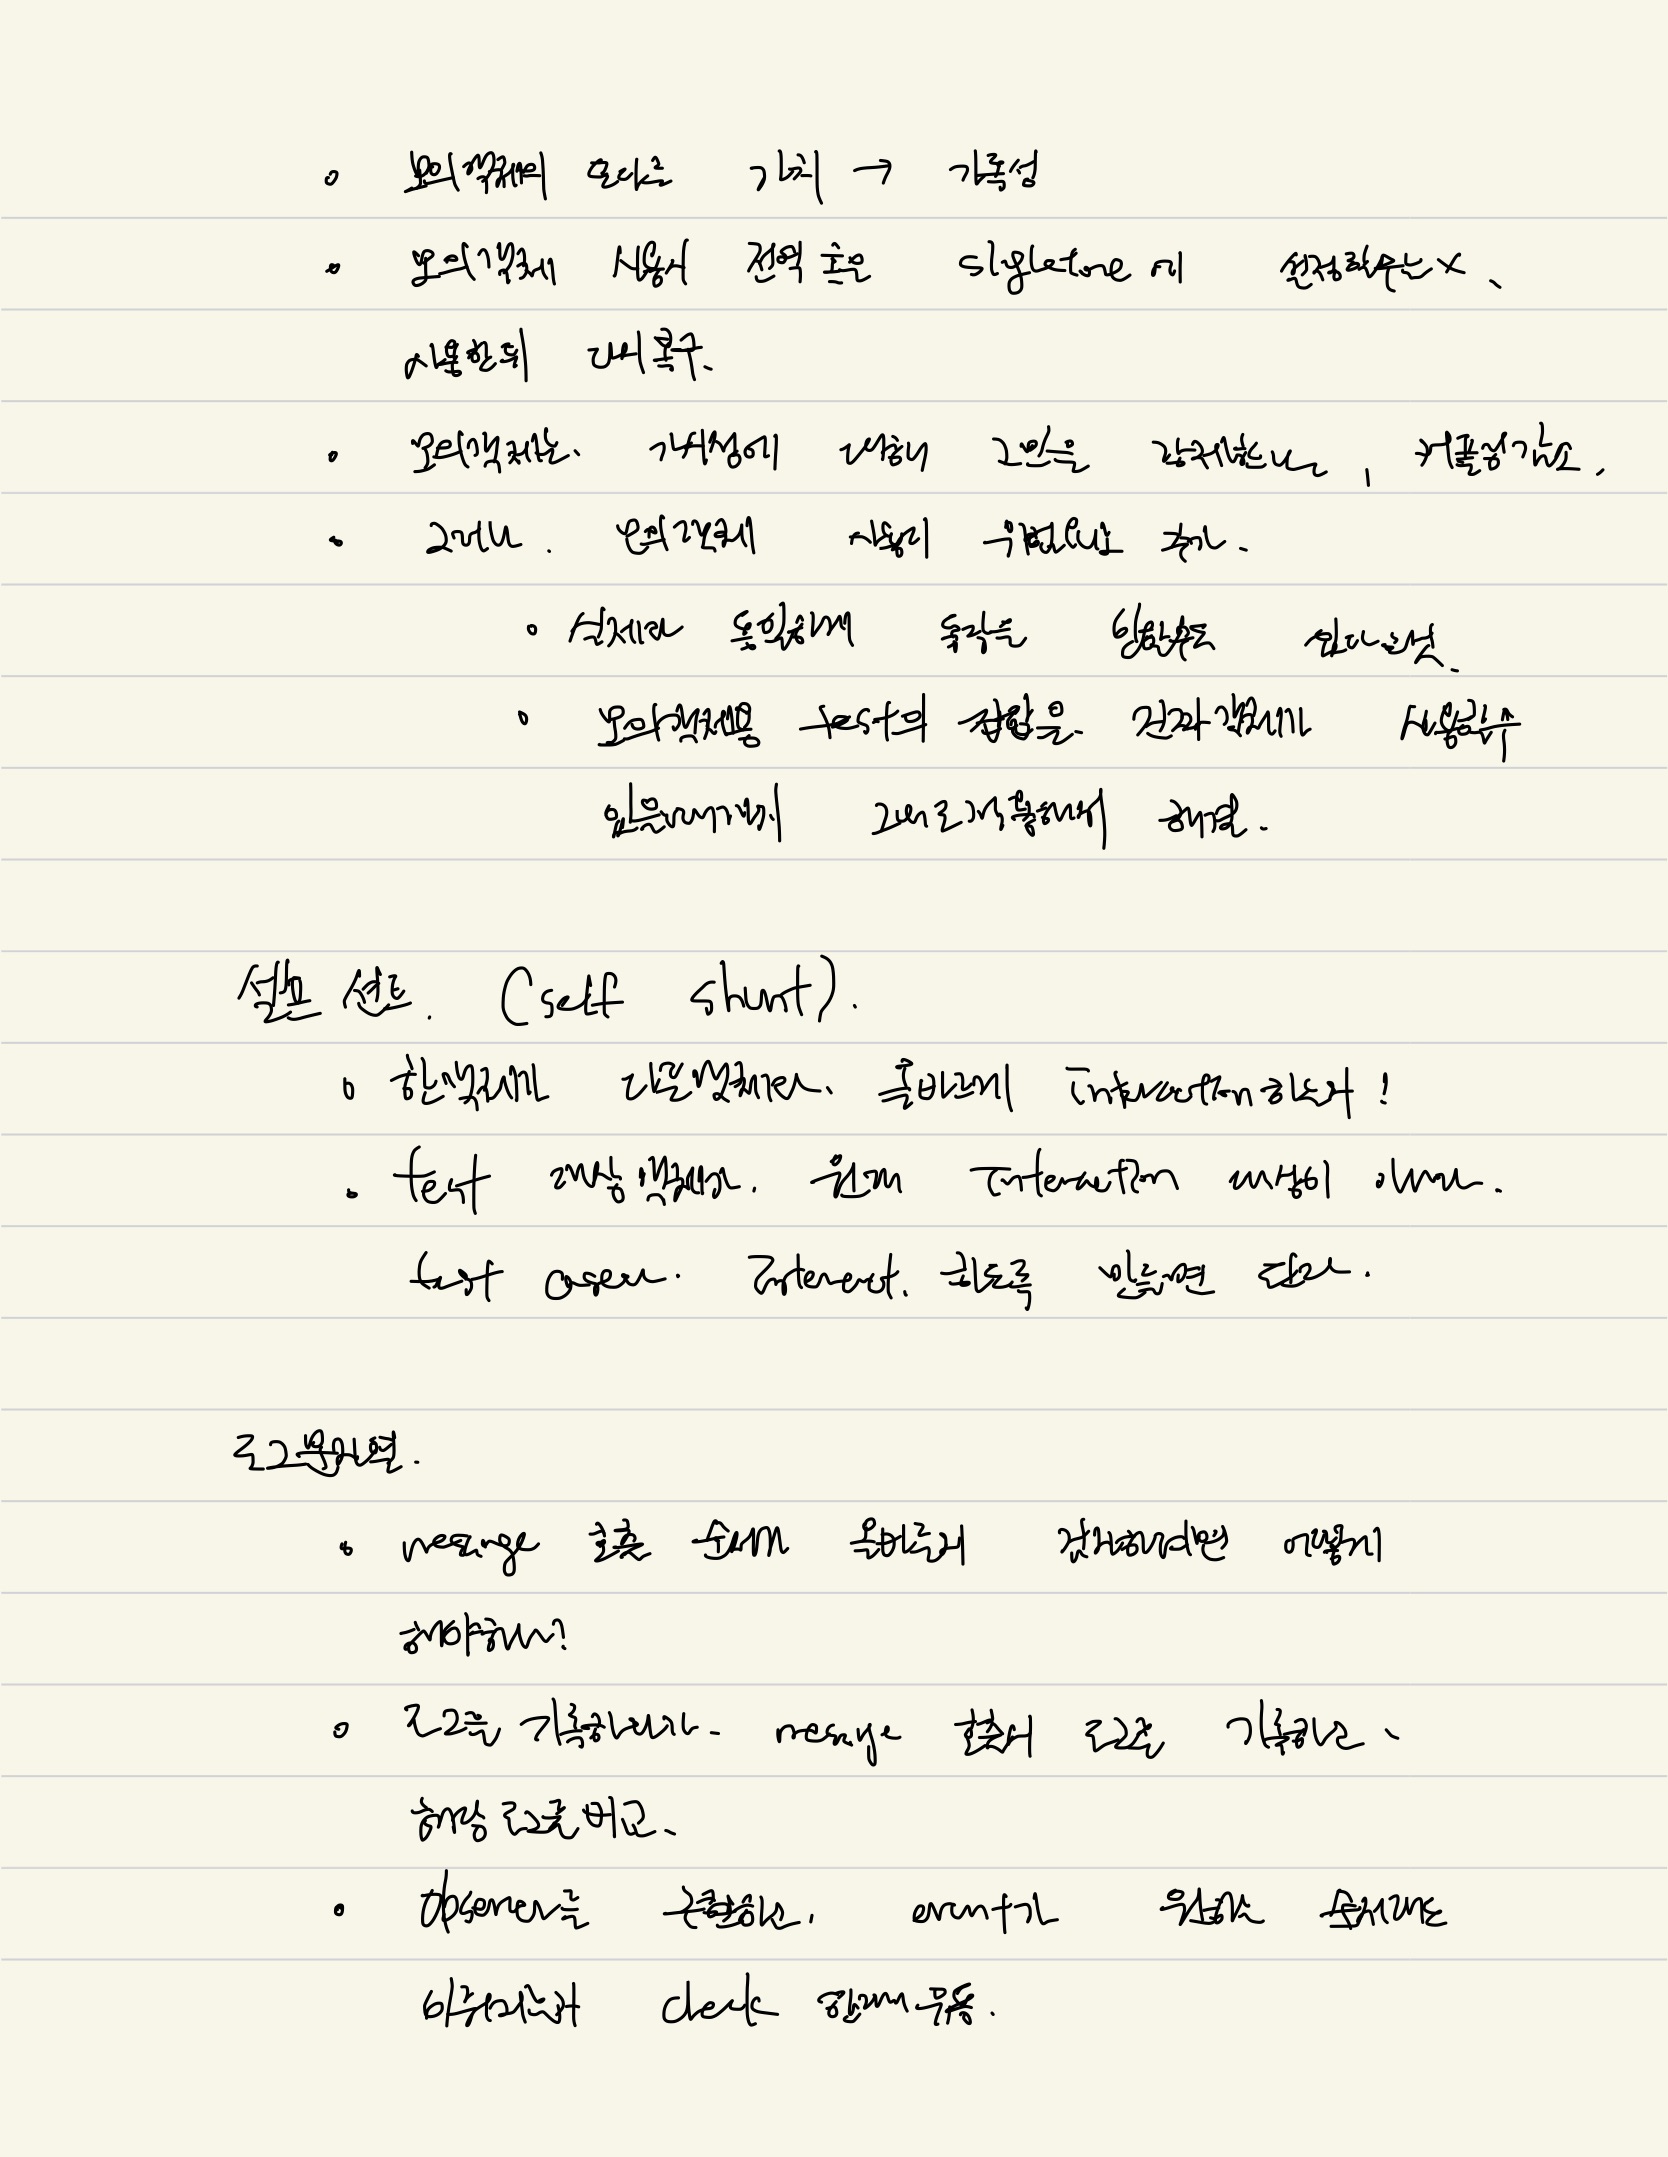 ◦ 모의객체의 또다른 가치 → 가독성
◦ 모의객체 사용시 전역 혹은 singletone에 설정할수는 X.
사용한뒤 다시복구.
• 모의객체는. 가시성에 대해 고민을 강제한다, 커플링감소.
• 그러나. 모의객체 사용이 위험요소 추가.
◦ 실제와 동일하게 동작을 안할수도 있다는것.
◦ 모의객체용 test의 집합을. 진짜객체가 사용할수
있을때까지 그대로적용해서 해결.
셀프 션트. (self shunt).
◦ 한객체가 다른객체와. 올바르게 Interaction하는가!
• test 대상객체가. 원래 Interaction 대상이 아니라.
test case와. Interact. 하도록 만들면 된다.
로그문자열.
• message 호출 순서가 올바른지 검사하려면 어떻게
해야하나?
◦ 로그를 기록하다가. message 호출시 로그를 기록하고.
해당로그를비교.
• Observer를 구현하고, event가 원하는 순서대로
check 할때 유용.